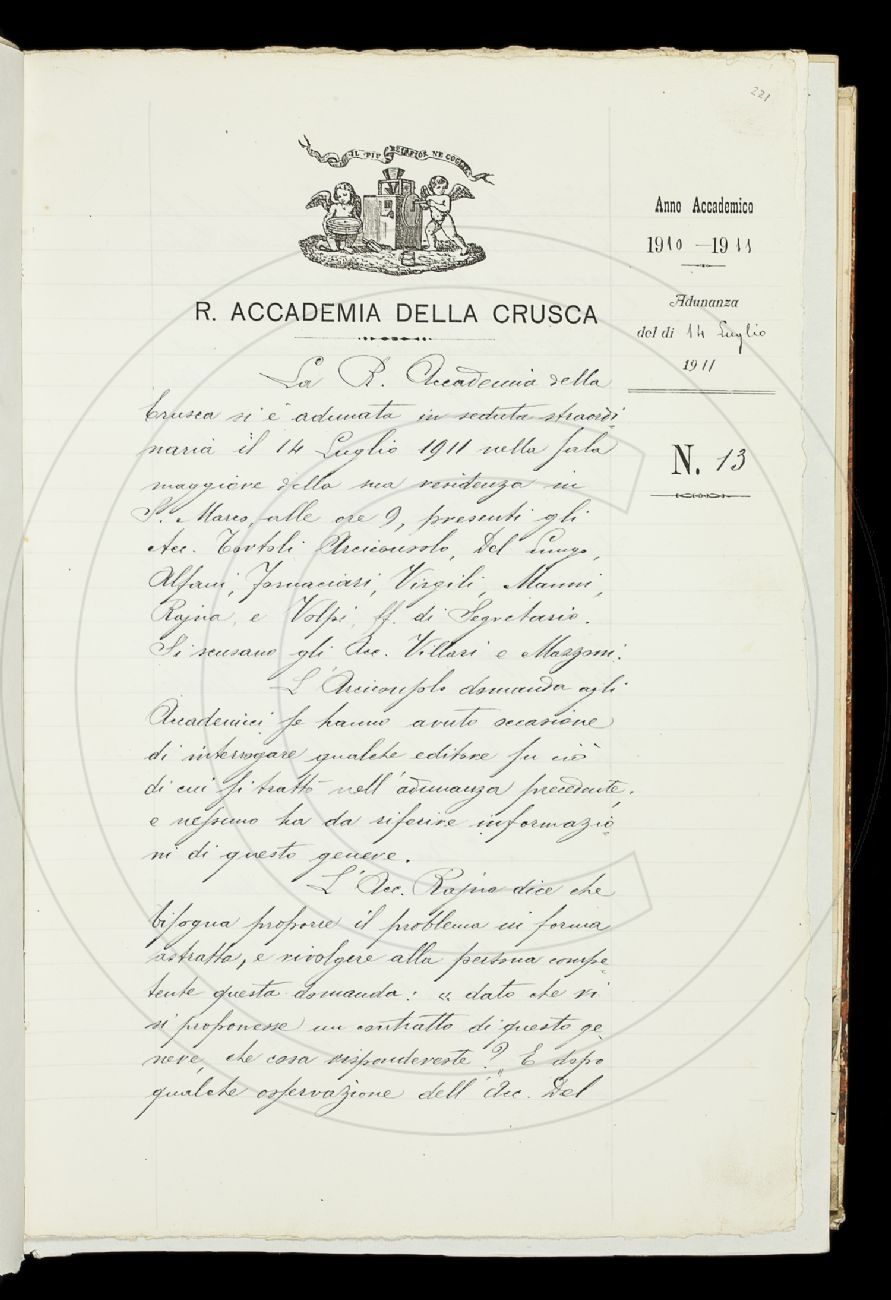 221
IL PIÙ BEL FIOR NE COGLIE
R. ACCADEMIA DELLA CRUSCA
Anno Accademico
1910 — 1911
Adunanza
del dì 14 Luglio
1911
N. 13
La R. Accademia della
Crusca si è adunata in seduta straordi-
naria il 14 Luglio 1911 nella sala
maggiore della sua residenza in
S. Marco, alle ore 9, presenti gli
Acc. Tortoli Arciconsolo, Del Lungo,
Alfani, Fornaciari, Virgili, Manni,
Rajna, e Volpi, ff. di Segretario.
Si scusano gli Acc. Villari e Mazzoni.
L'Arciconsolo domanda agli
Accademici se hanno avuto occasione
di interrogare qualche editore su ciò
di cui si trattò nell'adunanza precedente,
e nessuno ha da riferire informazio-
ni di questo genere.
L'Acc. Rajna dice che
bisogna proporre il problema in forma
astratta, e rivolgere alla persona compe-
tente questa domanda: « dato che vi
si proponesse un contratto di questo ge-
nere, che cosa rispondereste? „ E dopo
qualche osservazione dell'Acc. Del